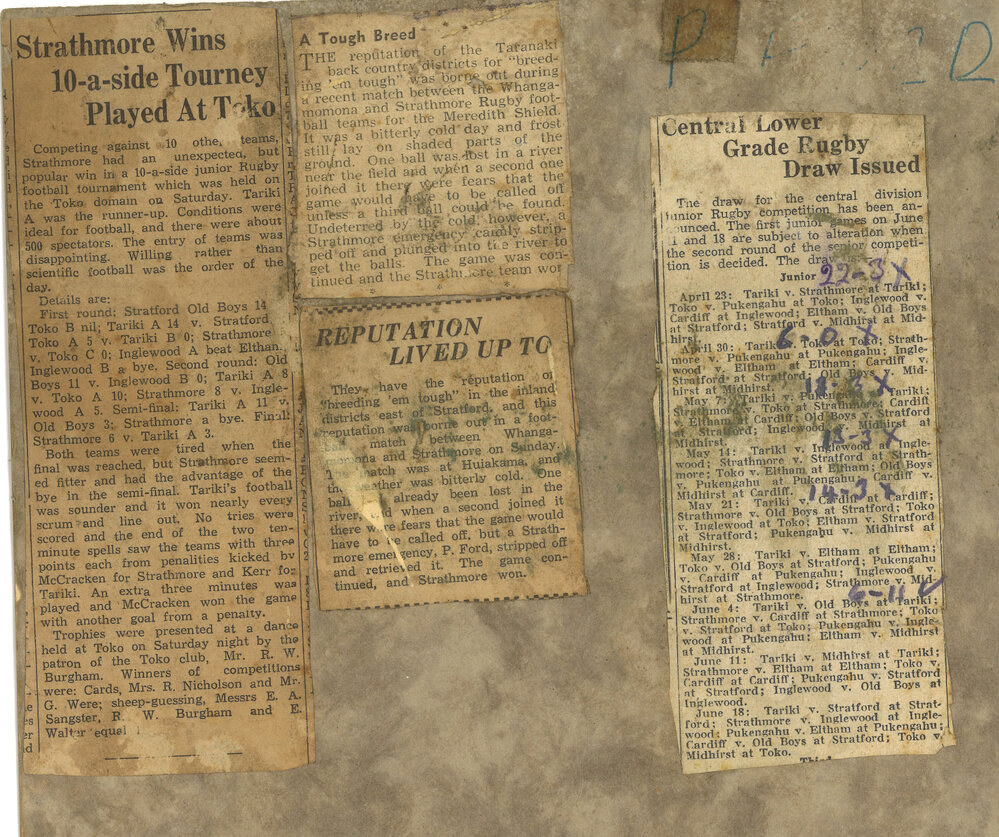 Strathmore Wins
10-a-side Tourney
Played At Toko
Competing against 10 othe. teams,
Strathmore had an unexpected, but
popular win in a 10-a-side junior Rugby
football tournament which was held on
the Toko domain on Saturday. Tariki
A was the runner-up. Conditions were
ideal for football, and there were about
500 spectators. The entry of teams was
disappointing. Willing rather than
scientific football was the order of the
day.
Details are:
First round: Stratford Old Boys 14
Toko B nil; Tariki A 14 v. Stratford
Toko A 5 v. Tariki B 0; Strathmore
v. Toko C 0; Inglewood A beat Elthan.
Inglewood B a bye. Second round: Old
Boys 11 v. Inglewood B 0; Tariki A 8
v. Toko A 10; Strathmore 8 v. Ingle-
wood A 5. Semi-final: Tariki A 11 v.
Old Boys 3; Strathmore a bye. Final:
Strathmore 6 v. Tariki A 3.
Both teams were tired when the
final was reached, but Strathmore seem-
ed fitter and had the advantage of the
bye in the semi-final. Tariki's football
was sounder and it won nearly every
scrum and line out. No tries were
scored and the end of the two ten-
minute spells saw the teams with three
points each from penalities kicked by
McCracken for Strathmore and Kerr for
Tariki. An extra three minutes was
played and McCracken won the game
with another goal from a penalty.
Trophies were presented at a dance
held at Toko on Saturday night by the
patron of the Toko club, Mr. R. W.
Burgham. Winners of competitions
were: Cards, Mrs. R. Nicholson and Mr.
G. Were; sheep-guessing, Messrs E. A.
Sangster, R. W. Burgham and E.
Walter equal
A Tough Breed
THE reputation of the Taranaki
back country districts for "breed-
ing 'em tough" was borne out during
a recent match between the Whanga-
momona and Strathmore Rugby foot-
ball teams for the Meredith Shield.
It was a bitterly cold day and frost
still lay on shaded parts of the
ground. One ball was lost in a river
near the field and when a second one
joined it there were fears that the
game would have to be called off
unless a third ball could be found.
Undeterred by the cold, however, a
Strathmore emergency calmly strip-
ped off and plunged into the river to
get the balls. The game was con-
tinued and the Strathmore team won
REPUTATION
LIVED UP TO
They have the reputation of
"breeding 'em tough" in the inland
districts east of Stratford, and this
reputation was borne out in a foot-
match between Whanga-
momona and Strathmore on Sunday.
match was at Huiakama, and
the weather was bitterly cold. One
ball already been lost in the
river, and when a second joined it
there were fears that the game would
have to be called off, but a Strath-
more emergency, P. Ford, stripped off
and retrieved it. The game con-
tinued, and Strathmore won.
Central Lower
Grade Rugby
Draw Issued
The draw for the central division
junior Rugby competition has been an-
nounced. The first junior games on June
1 and 18 are subject to alteration when
the second round of the senior competi-
tion is decided. The draw
Junior 22-3 X
April 23: Tariki v. Strathmore at Tariki;
Toko v. Pukengahu at Toko; Inglewood v.
Cardiff at Inglewood; Eltham v. Old Boys
at Stratford; Stratford v. Midhirst at Mid-
hirst. 6-0 X
April 30: Tariki v. Toko at Toko; Strath-
more v. Pukengahu at Pukengahu; Ingle-
wood v. Eltham at Eltham; Cardiff v.
Stratford at Stratford; Old Boys v. Mid-
hirst at Midhirst. 18-3 X
May 7: Tariki v. Pukengahu at Tariki;
Strathmore v. Toko at Strathmore; Cardiff
v. Eltham at Cardiff; Old Boys v. Stratford
at Stratford; Inglewood v. Midhirst at
Midhirst. 13-3 X
May 14: Tariki v. Inglewood at Ingle-
wood; Strathmore v. Stratford at Strath-
more; Toko v. Eltham at Eltham; Old Boys
v. Pukengahu at Pukengahu; Cardiff v.
Midhirst at Cardiff. 14-3 X
May 21: Tariki v. Cardiff at Cardiff;
Strathmore v. Old Boys at Stratford; Toko
v. Inglewood at Toko; Eltham v. Stratford
at Stratford; Pukengahu v. Midhirst at
Midhirst.
May 28: Tariki v. Eltham at Eltham;
Toko v. Old Boys at Stratford; Pukengahu
v. Cardiff at Pukengahu; Inglewood v.
Stratford at Inglewood; Strathmore v. Mid-
hirst at Strathmore. 6-11 ✓
June 4: Tariki v. Old Boys at Tariki;
Strathmore v. Cardiff at Strathmore; Toko
v. Stratford at Toko; Pukengahu v. Ingle-
wood at Pukengahu; Eltham v. Midhirst
at Midhirst.
June 11: Tariki v. Midhirst at Tariki;
Strathmore v. Eltham at Eltham; Toko v.
Cardiff at Cardiff; Pukengahu v. Stratford
at Stratford; Inglewood v. Old Boys at
Inglewood.
June 18: Tariki v. Stratford at Strat-
ford; Strathmore v. Inglewood at Ingle-
wood; Pukengahu v. Eltham at Pukengahu;
Cardiff v. Old Boys at Stratford; Toko v.
Midhirst at Toko.